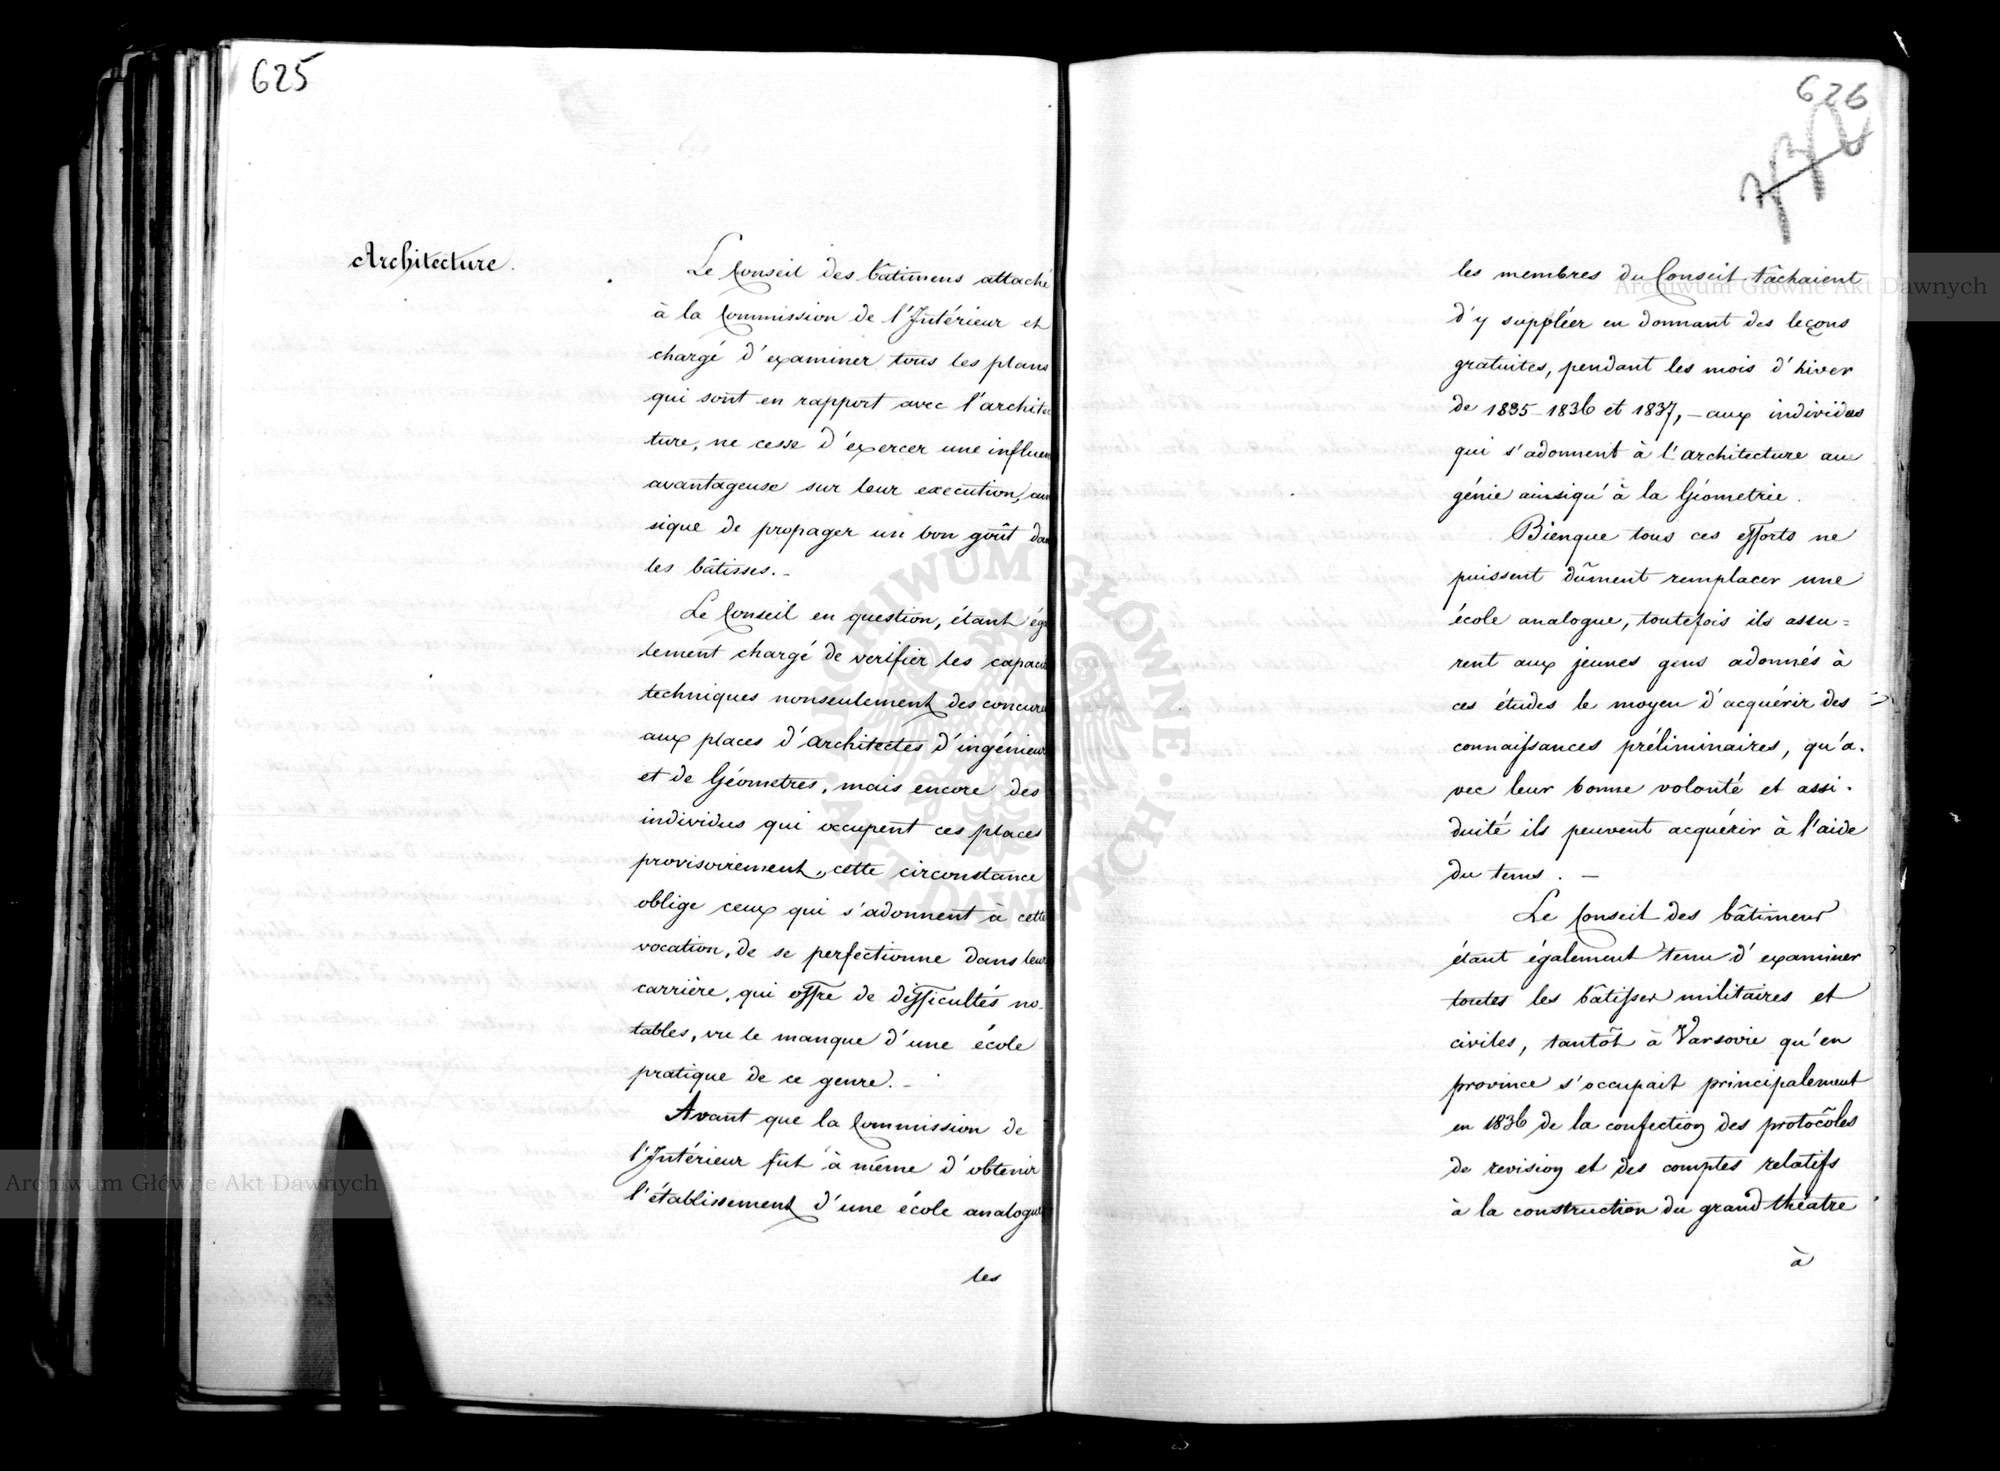 625
Architecture.
Le Conseil des bâtimens attaché
à la Commission de l'Intérieur et
chargé d'examiner tous les plans
qui sont en rapport avec l'architec
ture, ne cesse d'exercer une influen
avantageuse sur leur execution, ain
sique de propager un bon goût dan
les bâtisses.-
Le Conseil en question, étant éga
lement chargé de verifier les capaci
techniques nonseulement des concure
aux places d'architectes d'ingénieur
et de Géometres, mais encore des
individus qui occupent ces places
provisoirement, cette circonstance
oblige ceux qui s'adonnent à cette
vocation, de se perfectionne dans leur
carrière, qui offre de difficultés no-
tables, vu le manque d'une école
pratique de ce genre.-
Avant que la Commission de
l'Intérieur fût à même d'obtenir
l'établissement d'une école analogue
les
626
les membres du Conseil tâchaient
d'y suppléer en donnant des leçons
gratuites, pendant les mois d'hiver
de 1835-1836 et 1837,-aux individus
qui s'adonnent à l'architecture au
génie ainsiqu'à la Géometrie.
Bienque tous ces efforts ne
puissent dûment remplacer une
école analogue, toutefois ils assu=
rent aux jeunes gens adonnés à
ces études le moyen d'acquérir des
connaissances préliminaires, qu'a-
vec leur bonne volonté et assi-
duité ils peuvent acquérir à l'aide
du tems. -
Le Conseil des bâtimens
étant également tenu d'examiner
toutes les bâtisses militaires et
civiles, tantôt à Varsovie qu'en
province s'occupait principalement
en 1836 de la confection des protocôles
de revision et des comptes relatifs
à la construction du grand théatre
à
Archiwum Główne Akt Dawnych
Archiwum Główne Akt Dawnych
ARCHIWUM GŁÓWNE AKT DAWNYCH